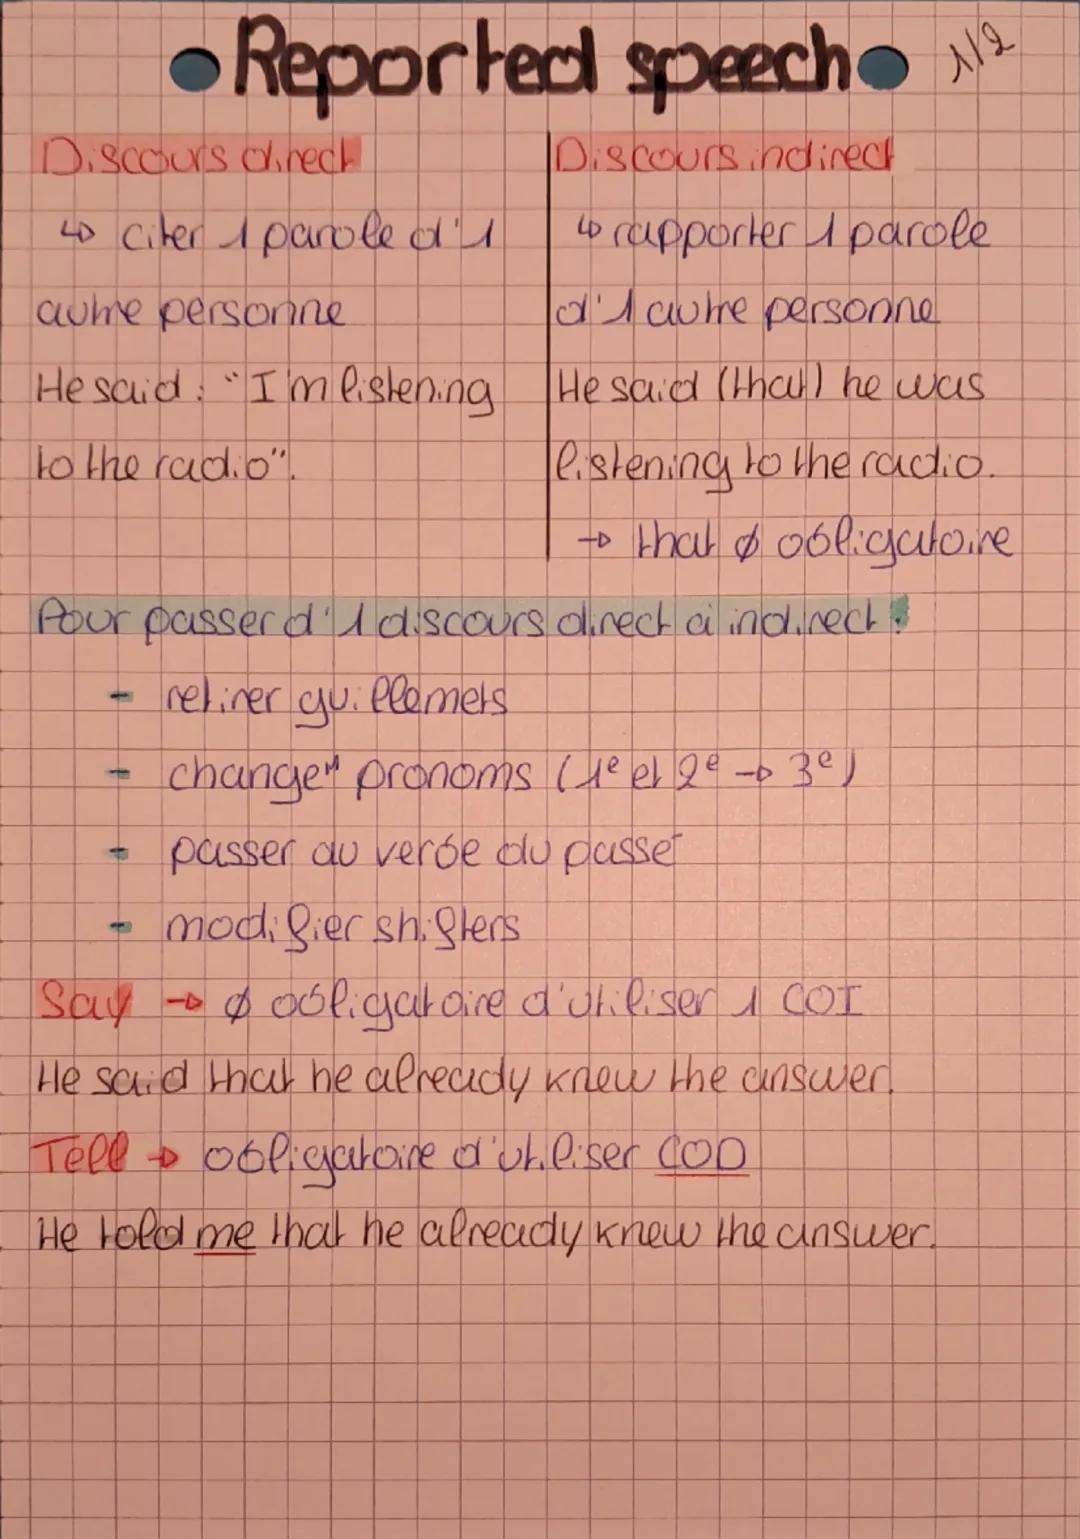 • Reported speech •
1/2
Discours direct
↳ citer 1 parole d'1
autre personne
He said : "I'm listening
to the radio".
Discours indirect
↳ rapporter 1 parole
d'1 autre personne
He said (that) he was
listening to the radio.
→ that ∅ obligatoire
Pour passer d'1 discours direct à indirect :
- retirer guillemets
- changeᵐ pronoms (1e et 2e → 3e)
- passer au verbe du passé
- modifier shifters
Say → ∅ obligatoire d'utiliser 1 COI
He said that he already knew the answer.
Tell → obligatoire d'utiliser COD
He told me that he already knew the answer.